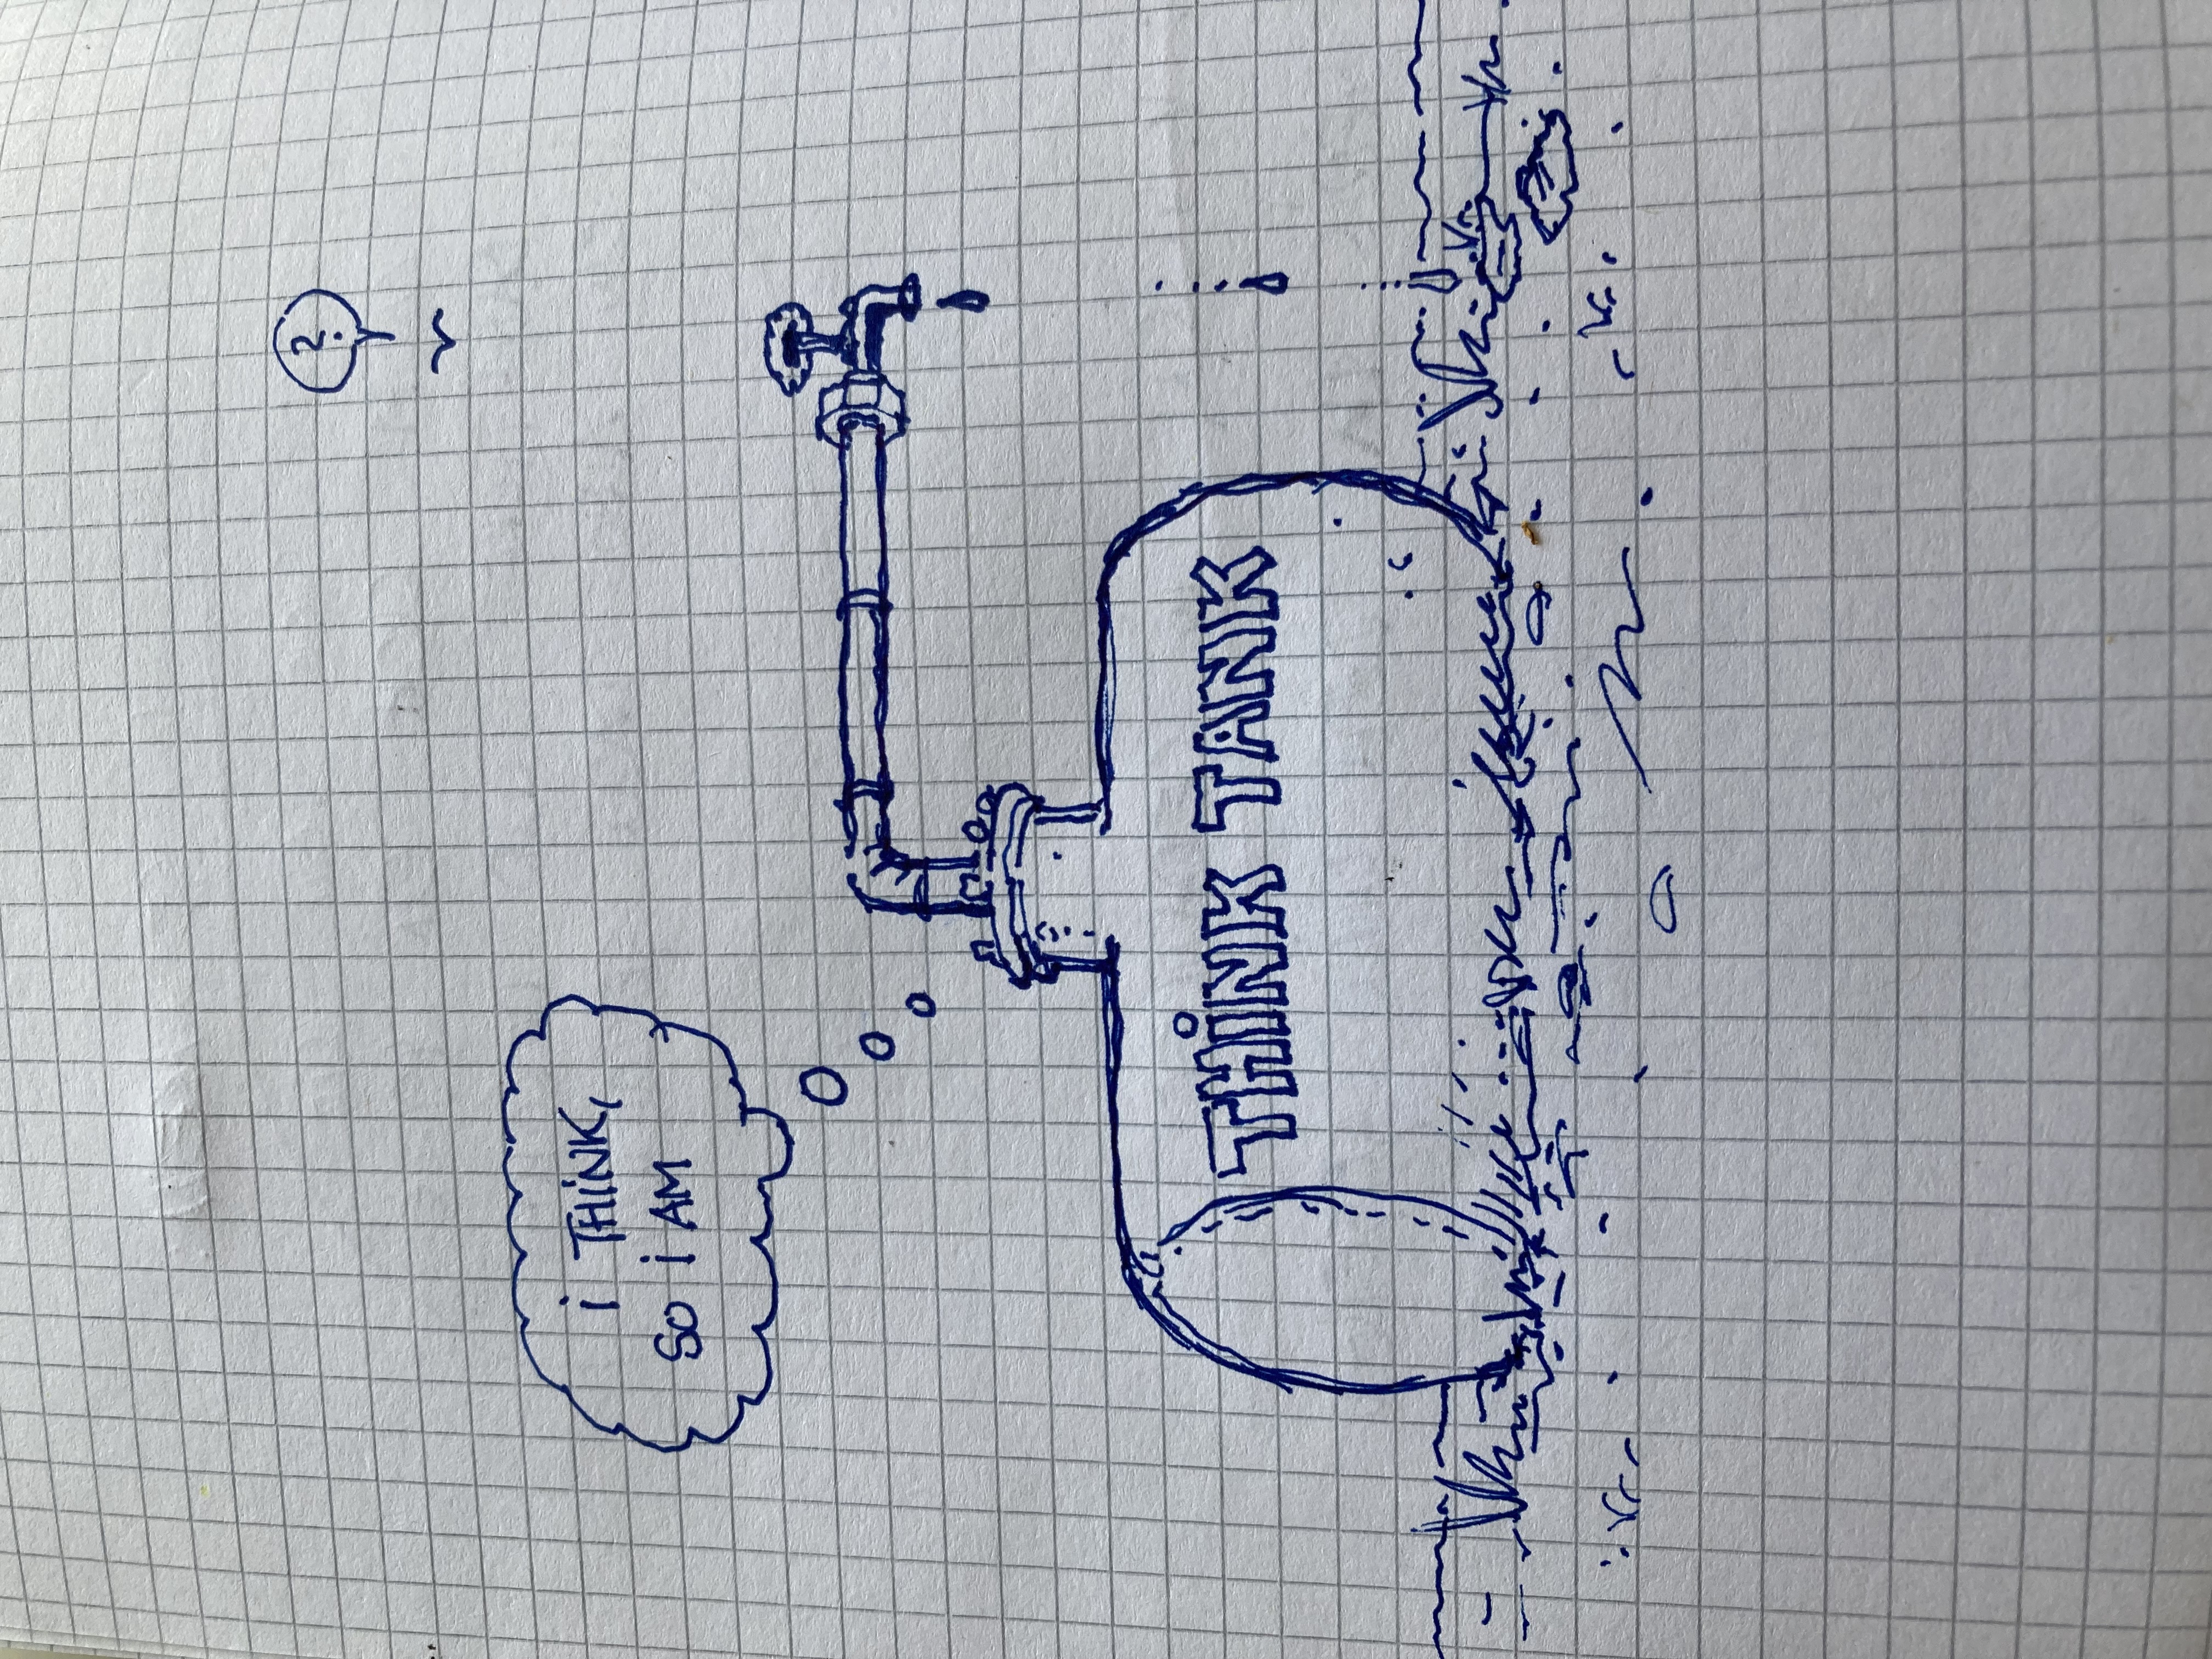 ?
i THiNK,
SO i AM
THiNK TANK